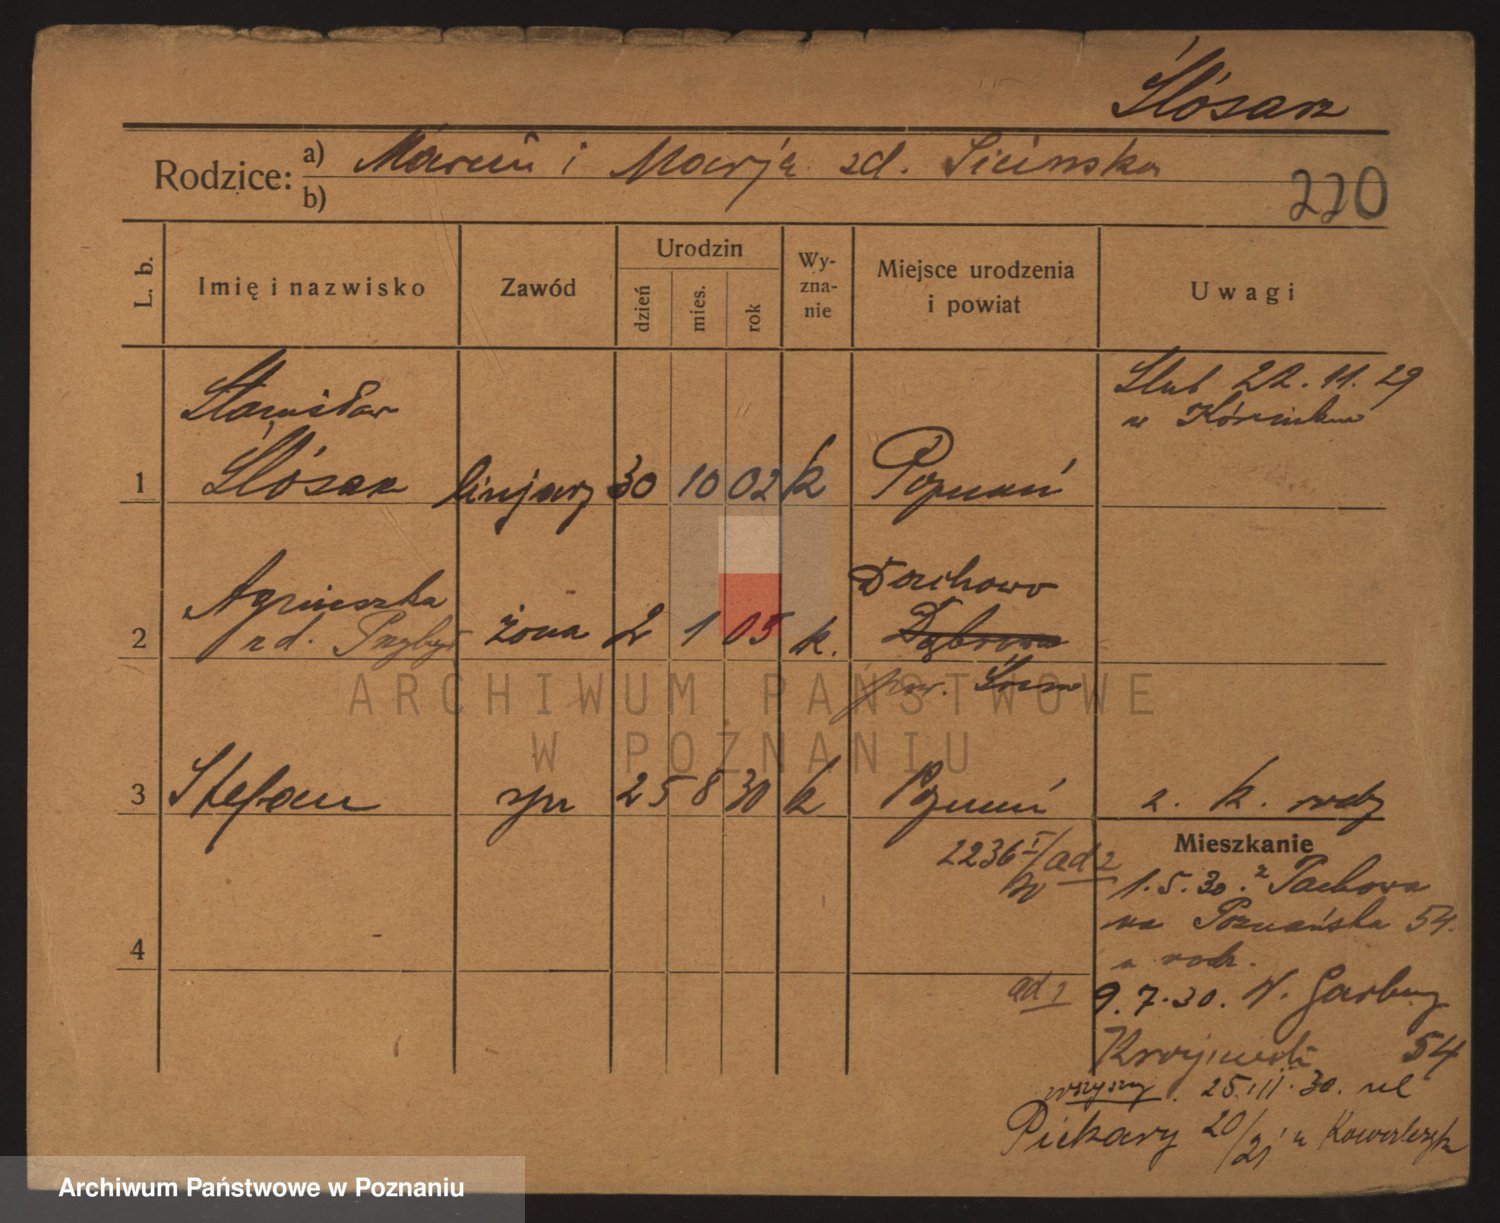 Ślósarz
Rodzice: a) Marcin i Marja zd. Sicińska
b)
220
L. b.
Imię i nazwisko
Zawód
Urodzin
dzień
mies.
rok
Wy-
zna-
nie
Miejsce urodzenia
i powiat
Uwagi
Stanisław
Ślósarz
1
30 10 02 k Poznań
Ślub 22.11.29
w Kórniku
Agnieszka
2 zd. Przybył żona 2 1 05 k.
Dachowo
Dąbrowa
pow. Śrem
3 Stefan syn 25 8 30 k Poznań z. k. rodz
ARCHIWUM PAŃSTWOWE
W POZNANIU
Mieszkanie
2236 I/30 ad 2
1.5.30. z Dachowa
na Poznańska 54.
u rodz.
4
ad 1 9.7.30. W. Garbary
54
25.III.30. ul
Piekary 20/21 u Kowalczyk
Archiwum Państwowe w Poznaniu